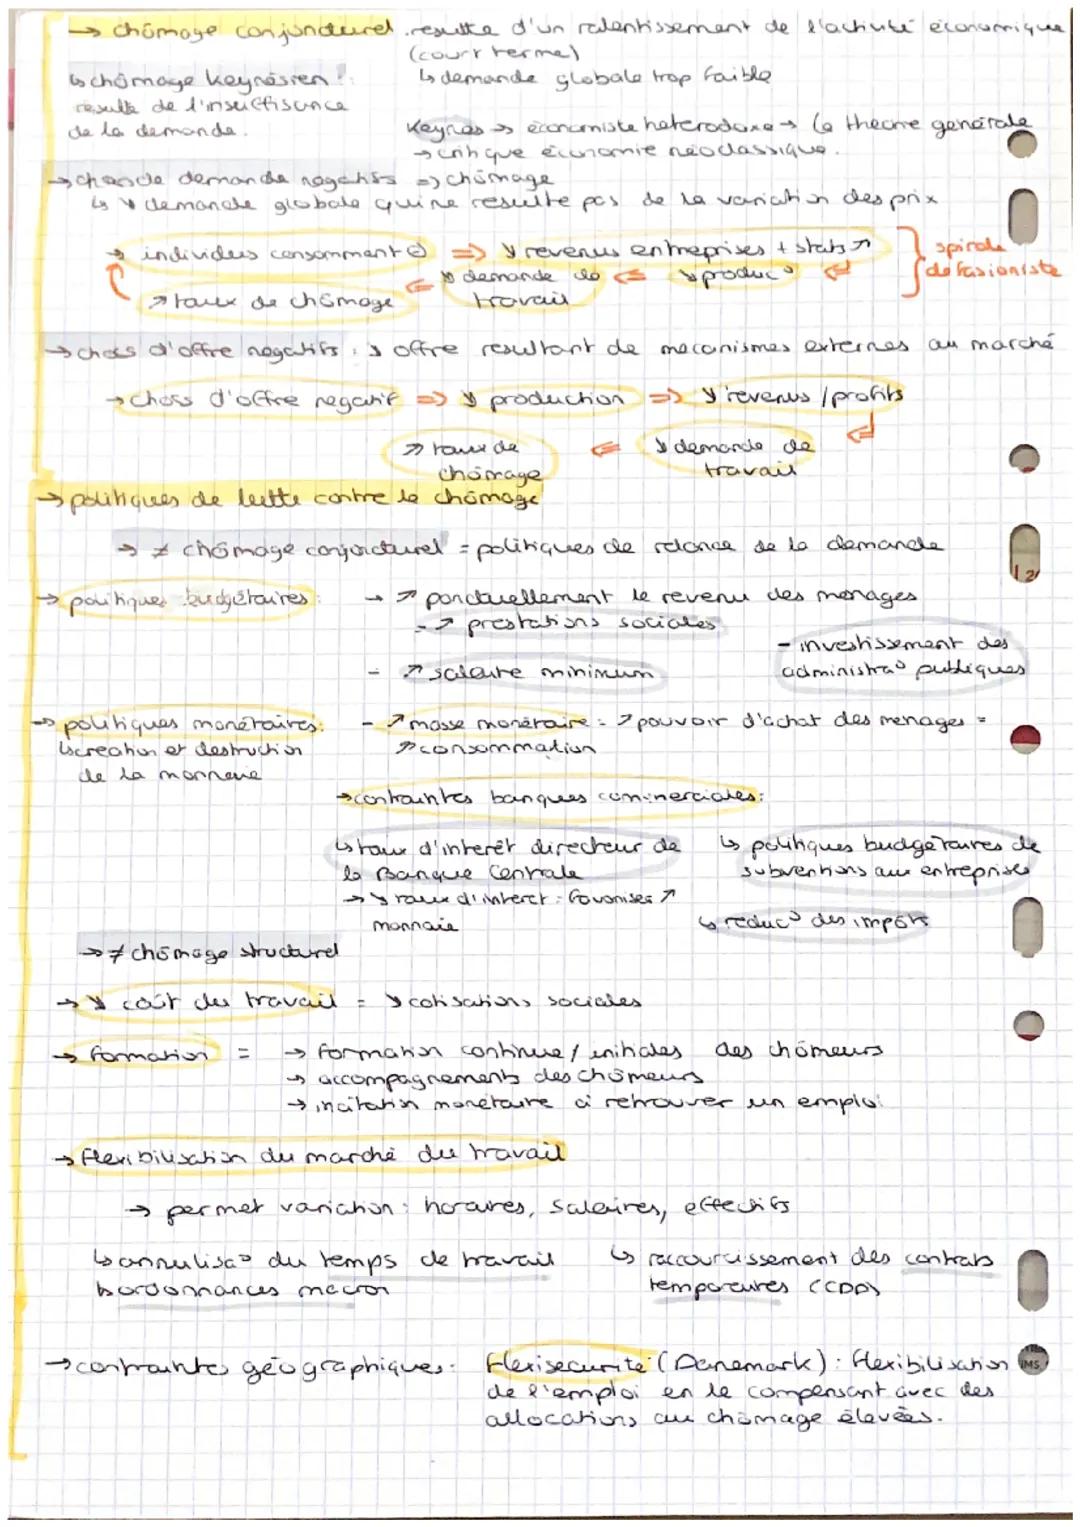 → chômage conjoncturel : resulte d'un ralentissement de l'activité économique
(court terme)
↳ chômage keynésien :
↳ demande globale trop faible
resulte de l'insuffisance
de la demande.
Keynes → économiste heterodoxe → la théorie générale
→ critique économie néoclassique.
→ chocs de demande negatifs => chômage
↳ ↘ demande globale qui ne resulte pas de la variation des prix
→ individus consomment ⊖ => ↘ revenus entreprises + stats ↗
spirale
déflasioniste
↘ demande de <= ↘ produc° <=
travail
↗ taux de chômage <=
→ chocs d'offre negatifs : ↘ offre resultant de mecanismes externes au marché
→ chocs d'offre negatif => ↘ production => ↘ revenus / profits
↗ taux de <= ↘ demande de <=
chômage travail
→ politiques de lutte contre le chômage
→ ≠ chômage conjoncturel = politiques de relance de la demande
→ politiques budgétaires : → ↗ ponctuellement le revenu des menages
- ↗ prestations sociales
- investissement des
- ↗ salaire minimum
administra° publiques
→ politiques monétaires : - ↗ masse monétaire = ↗ pouvoir d'achat des menages =
↳ creation et destruction ↗ consommation
de la monnaie
→ contraintes banques commerciales :
↳ taux d'interêt directeur de ↳ politiques budgétaires de
la Banque Centrale subventions aux entreprises
→ ↘ taux d'interet : favoriser ↗
monnaie ↳ reduc° des impôts
→ ≠ chômage structurel
→ ↘ coût du travail = ↘ cotisations sociales
→ formation = → formation continue / initiales des chômeurs
→ accompagnements des chômeurs
→ incitation monétaire à retrouver un emploi
→ flexibilisation du marché du travail
→ permet variation : horaires, salaires, effectifs
↳ annulisa° du temps de travail ↳ raccourcissement des contrats
↳ ordonnances macron temporaires (CDD)
→ contraintes géographiques : flexisecurité (Danemark) : flexibilisation
de l'emploi en le compensant avec des
allocations au chômage élevées.